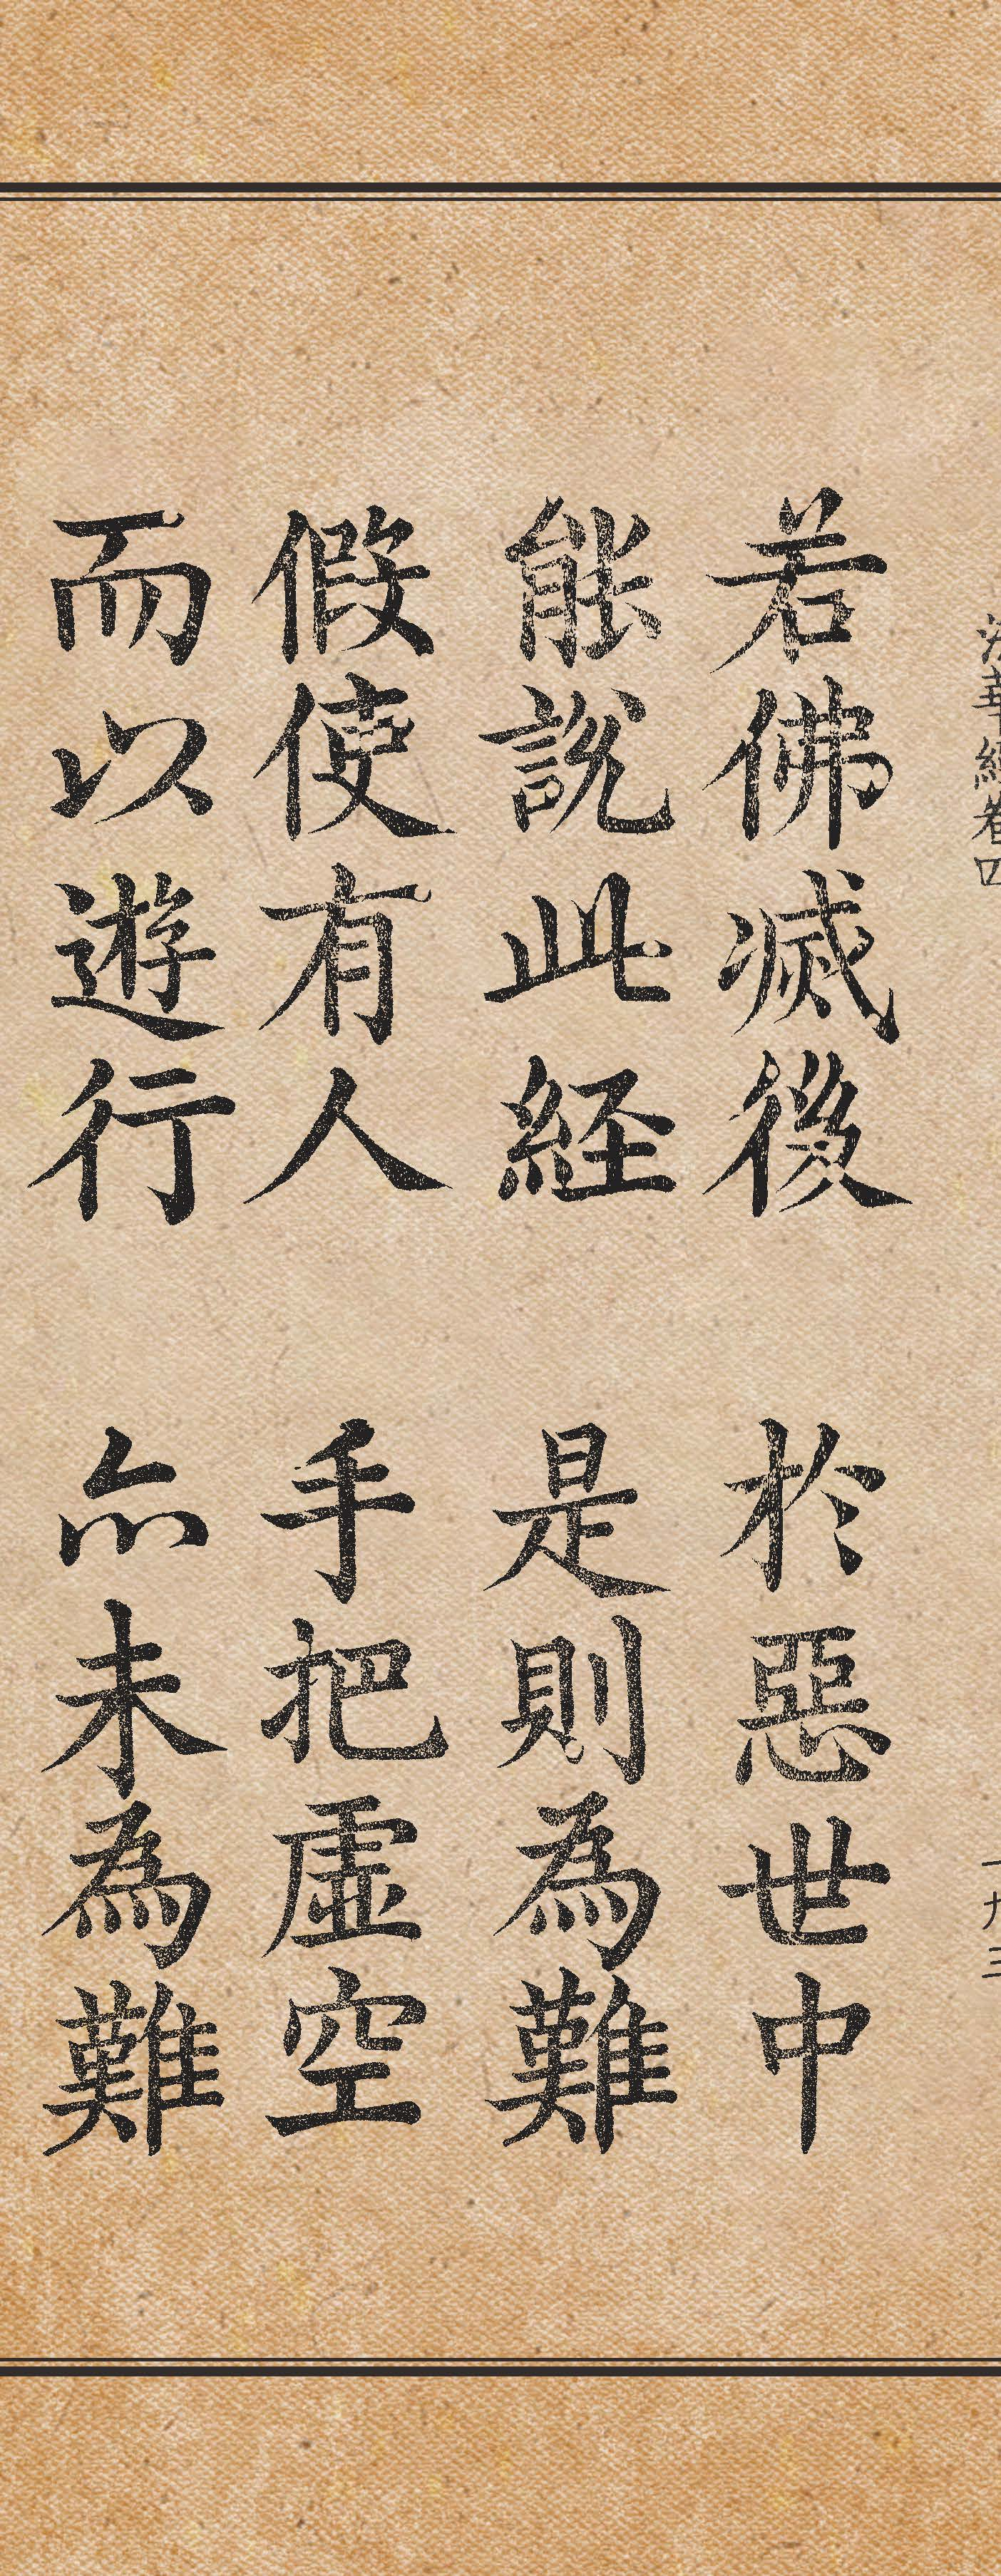 法華経巻四
一九三
若佛滅後 於惡世中
能說此経 是則為難
假使有人 手把虛空
而以遊行 亦未為難